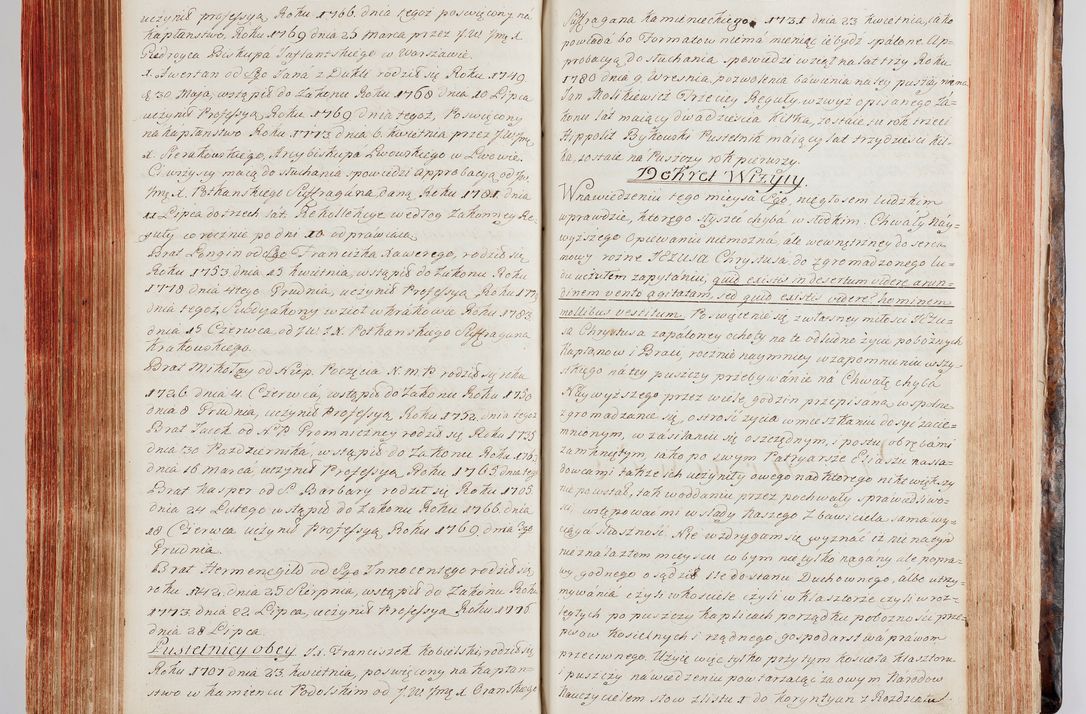 uczynił Professyą Roku 1766. dnia tegoż poswięcony na
kapłanstwo, Roku 1769 dnia 25 marca przez J.W. Jmę X.
Biskupa Inflantskiego w Warszawie.
X. Awertan od Sgo Jana z Dukli rodził się Roku 1749
d 30 Maja, wstąpił do Zakonu Roku 1768 dnia 10 Lipca
uczynił Professyą Roku 1769 dnia tegoż, Poswięcony
na kapłanstwo Roku 1773 dnia 6. kwietnia przez J.W. Jmę
X. Sierakowskiego, Arcybiskupa Lwowskiego w Lwowie.
Ci wszyscy mają do słuchania spowiedzi approbacyą od J.W.
Jmę X. Potkanskiego Suffragana, daną Roku 1781 dnia
11 Lipca do trzech lat. Rekollekcye według Zakonney Re=
guły co rocznie po dni 10 odprawiaią.
Brat Longin od Sgo Franciszka Xawerego, rodził się
Roku 1753 dnia 15 kwietnia, wstąpił do Zakonu Roku
1778 dnia 4tego Grudnia, uczynił Professyą Roku 1779
dnia tegoż, Subdyakony wziął w krakowie Roku 1783
dnia 15 Czerwca od J.W. J.X. Potkanskiego Suffragana
krakowskiego.
Brat Mikołay od Niep. Poczęcia N.M.P. rodził się roku
1726 dnia 4 Czerwca, wstąpił do Zakonu Roku 1750
dnia 8 Grudnia, uczynił Professyą Roku 1752 dnia tegoż
Brat Jacek od N.P. Gromniczney rodził się Roku 1735
dnia 30 Pazdziernika, wstąpił do Zakonu Roku 176
dnia 16 marca, uczynił Professyą Roku 1765 dnia teg
Brat kasper od S. Barbary rodził się Roku 1705
dnia 24 Lutego wstąpił do Zakonu Roku 1766 dnia
18 Czerwca uczynił Professyą Roku 1769 dnia
Grudnia.
Brat Hermenegild od Sgo Innocentego rodził się
roku 1742 dnia 25 Sierpnia, wstąpił do Zakonu Roku
1773 dnia 22 Lipca, uczynił Professyą Roku 1776
dnia 28 Lipca.
Pustelnicy obcy JX. Franciszek kobielski, rodził się
Roku 1707 dnia 23 kwietnia, poswięcony na kapłan=
stwo w kamieńcu Podolskim od J.W. Jmę X. Oranskiego
Suffragana kamienieckiego 1731 dnia 23 kwietnia, iako
powiada bo Formatow niema mieniąc ie bydź spalone. Ap=
probacyą do słuchania spowiedzi wziął na lat trzy Roku
1780 dnia 9 Wresnia, pozwolenia bawienia na tey puszczy nie ma
Jan Moskiewicz Trzeciey Reguły wzwyż opisanego Za=
konu lat maiący dwadziescia kilka, zostaie iuż rok trzeci
Hippolit Bykowski Pustelnik maiący lat trzydziesci kil=
ka, zostaie na Puszczy rok pierwszy.
Dekret Wizyty.
W nawiedzeniu tego mieysca Sgo, nie głosem ludzkim
wprawdzie, ktorego słyszeć chyba w słodkim Chwały Nay=
wyższego opiewaniu niemożna, ale wewnętrzney do serca
mowy rożne JEZUSA Chrystusa do zgromadzonego lu=
du uczułem zapytanie, quid existis in desertum videre arun=
dinem vento agitatam, sed quid existis videre? hominem
mollibus vestitum. Poswięcenie się z własney miłosci JEZU=
sa Chrystusa zapaloney ochoty na te odludne życie pobożnych
kapłanow i Braci, rocznie naymniey w zapomnieniu wszy=
stkiego na tey puszczy przebywanie na Chwałę chyba
Naywyższego przez wiele godzin przepisana, w spolne
zgromadzanie się, ostrość życia w mieszkaniu dosyć zacie=
mnionym, w zasilaniu się oszczędnym, i postu obrębami
zamkniętym, iako po swym Patryarsze Eliaszu nasla=
dowcami takze ich uczyniły owego nad ktorego nikt większy
nie powstał, tak w oddaniu przez pochwały sprawiedliwo=
ści, wstępować mi w slady Naszego Zbawiciela sama wy=
ciąga słuszność. Nie wzdrygam się wyznać iż nic na tych
nie znalazłem mieyscu co bym nie tylko nagany ale popra=
wy godnego osądził. Ile do stanu Duchownego, albo utrzy=
mywania czyli w kosciele czyli w klasztorze czyli w roz=
ległych po puszczy kaplicach porządku pobożności prze=
pisow koscielnych i rządnego, gospodarstwa prawom
przeciwnego. Użyię więc tylko przy tym kościoła klasztoru
i puszczy nawiedzeniu powtarzaiąc za owym Narodow
Nauczycielem słow z listu 1 do koryntyan z Rozdziału